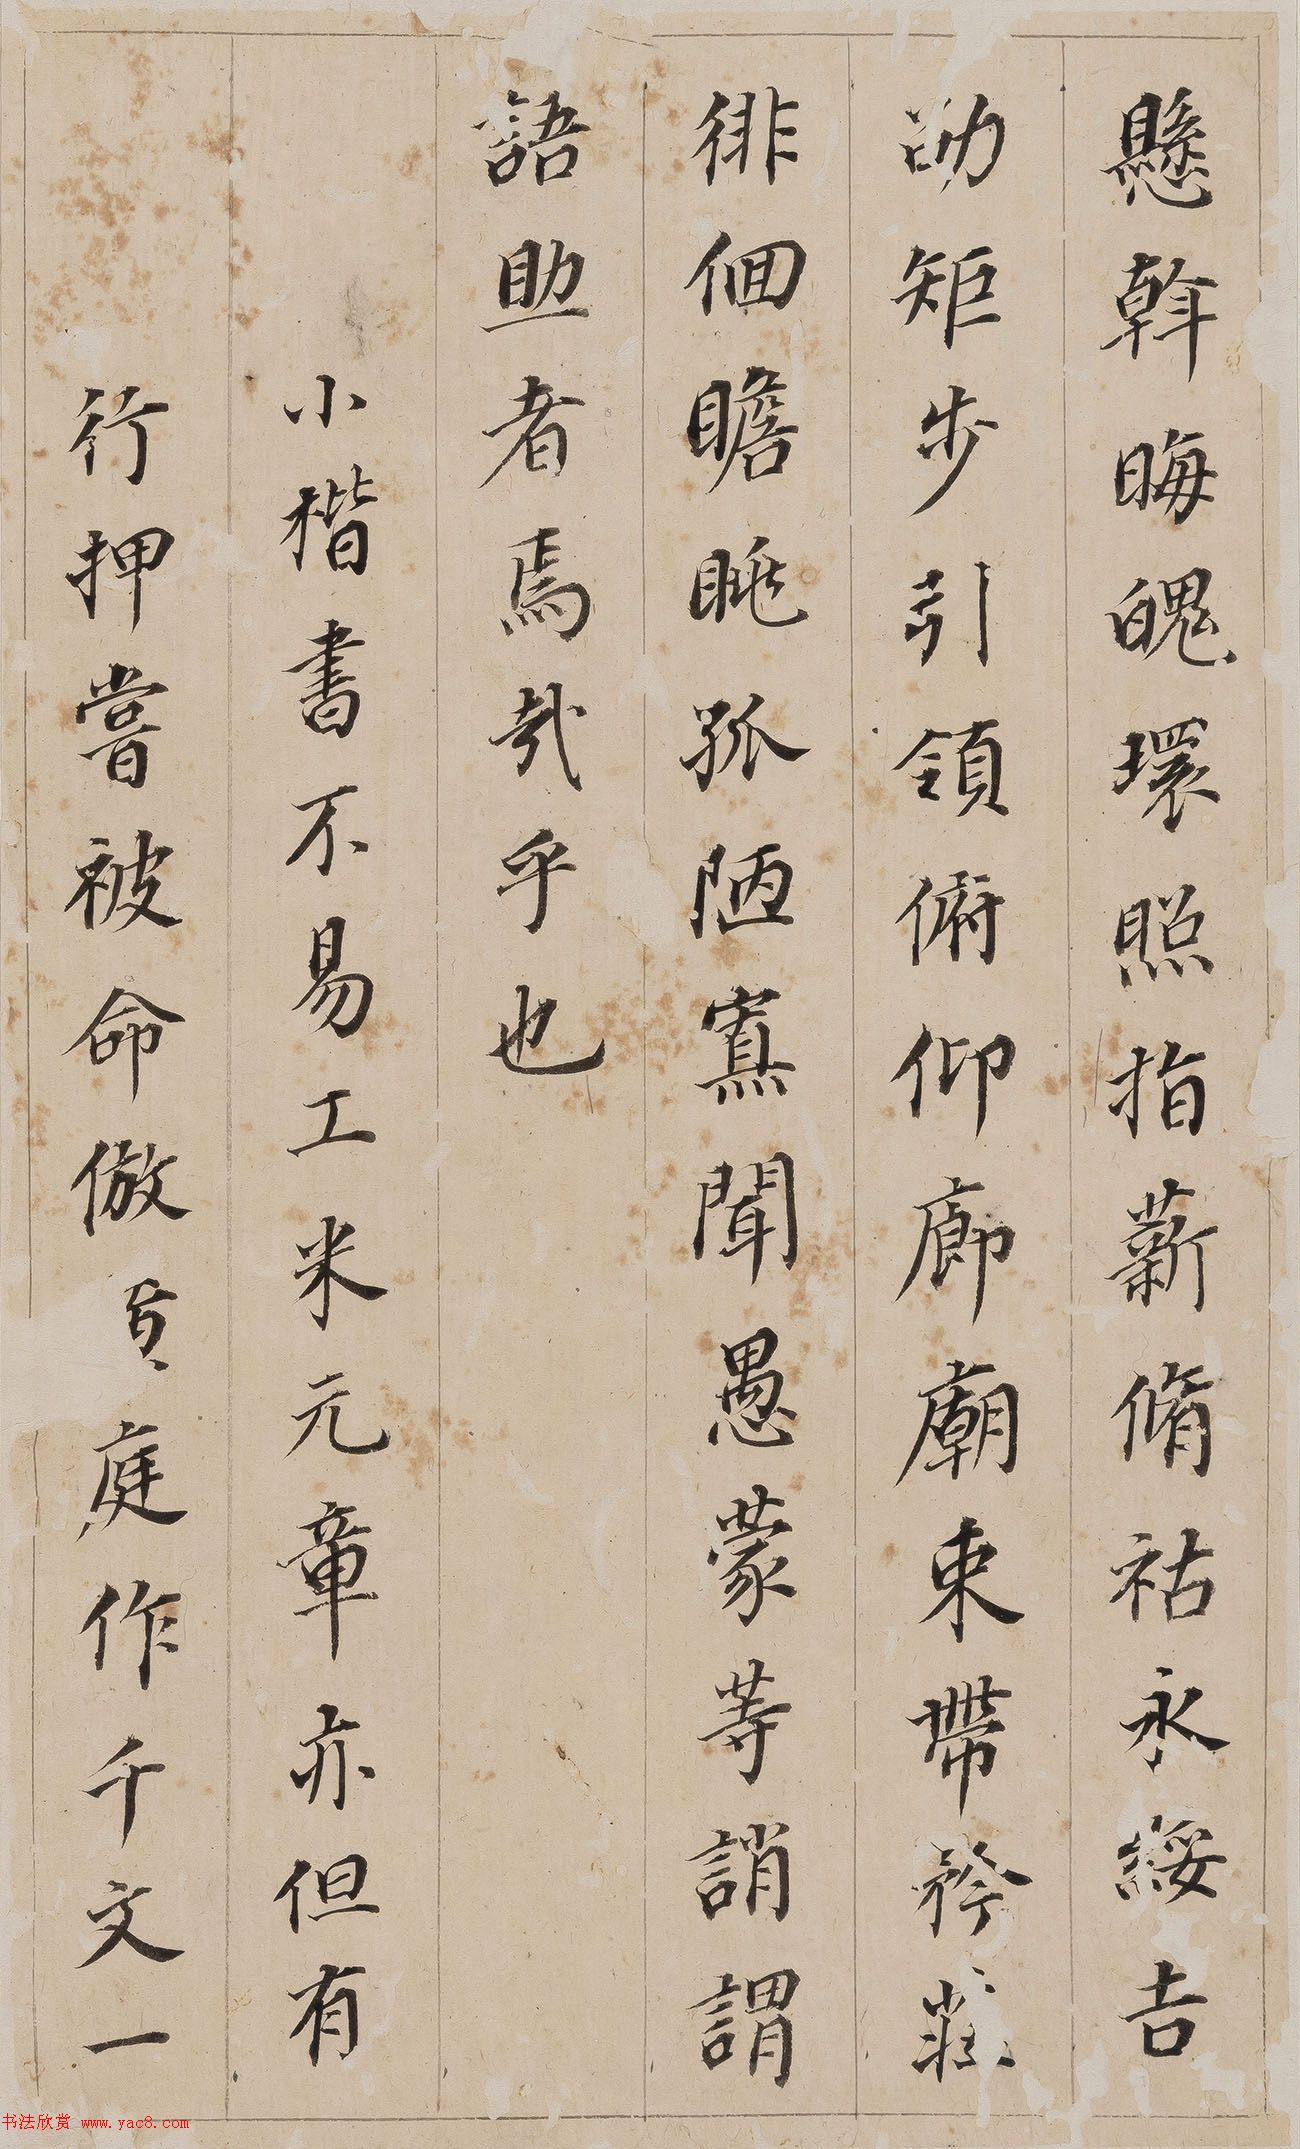 懸斡晦魄環照指薪脩祜永綏吉
劭矩步引領俯仰廊廟束帶矜莊
徘徊瞻眺孤陋寡聞愚蒙等誚謂
語助者焉哉乎也
小楷書不易工米元章亦但有
行押嘗被命倣黃庭作千文一
书法欣赏 www.yac8.com